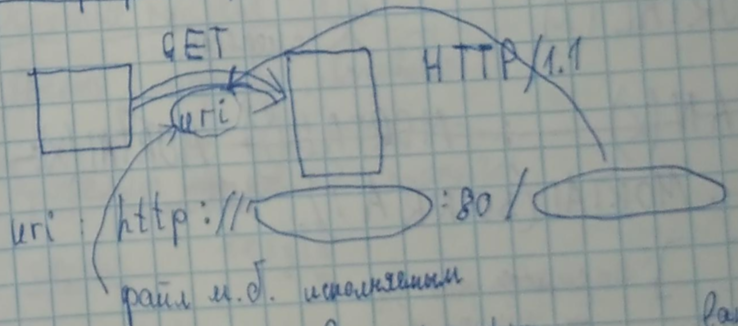 GET
HTTP/1.1
uri
uri : http:// :80 /
файл м.б. исполняемым